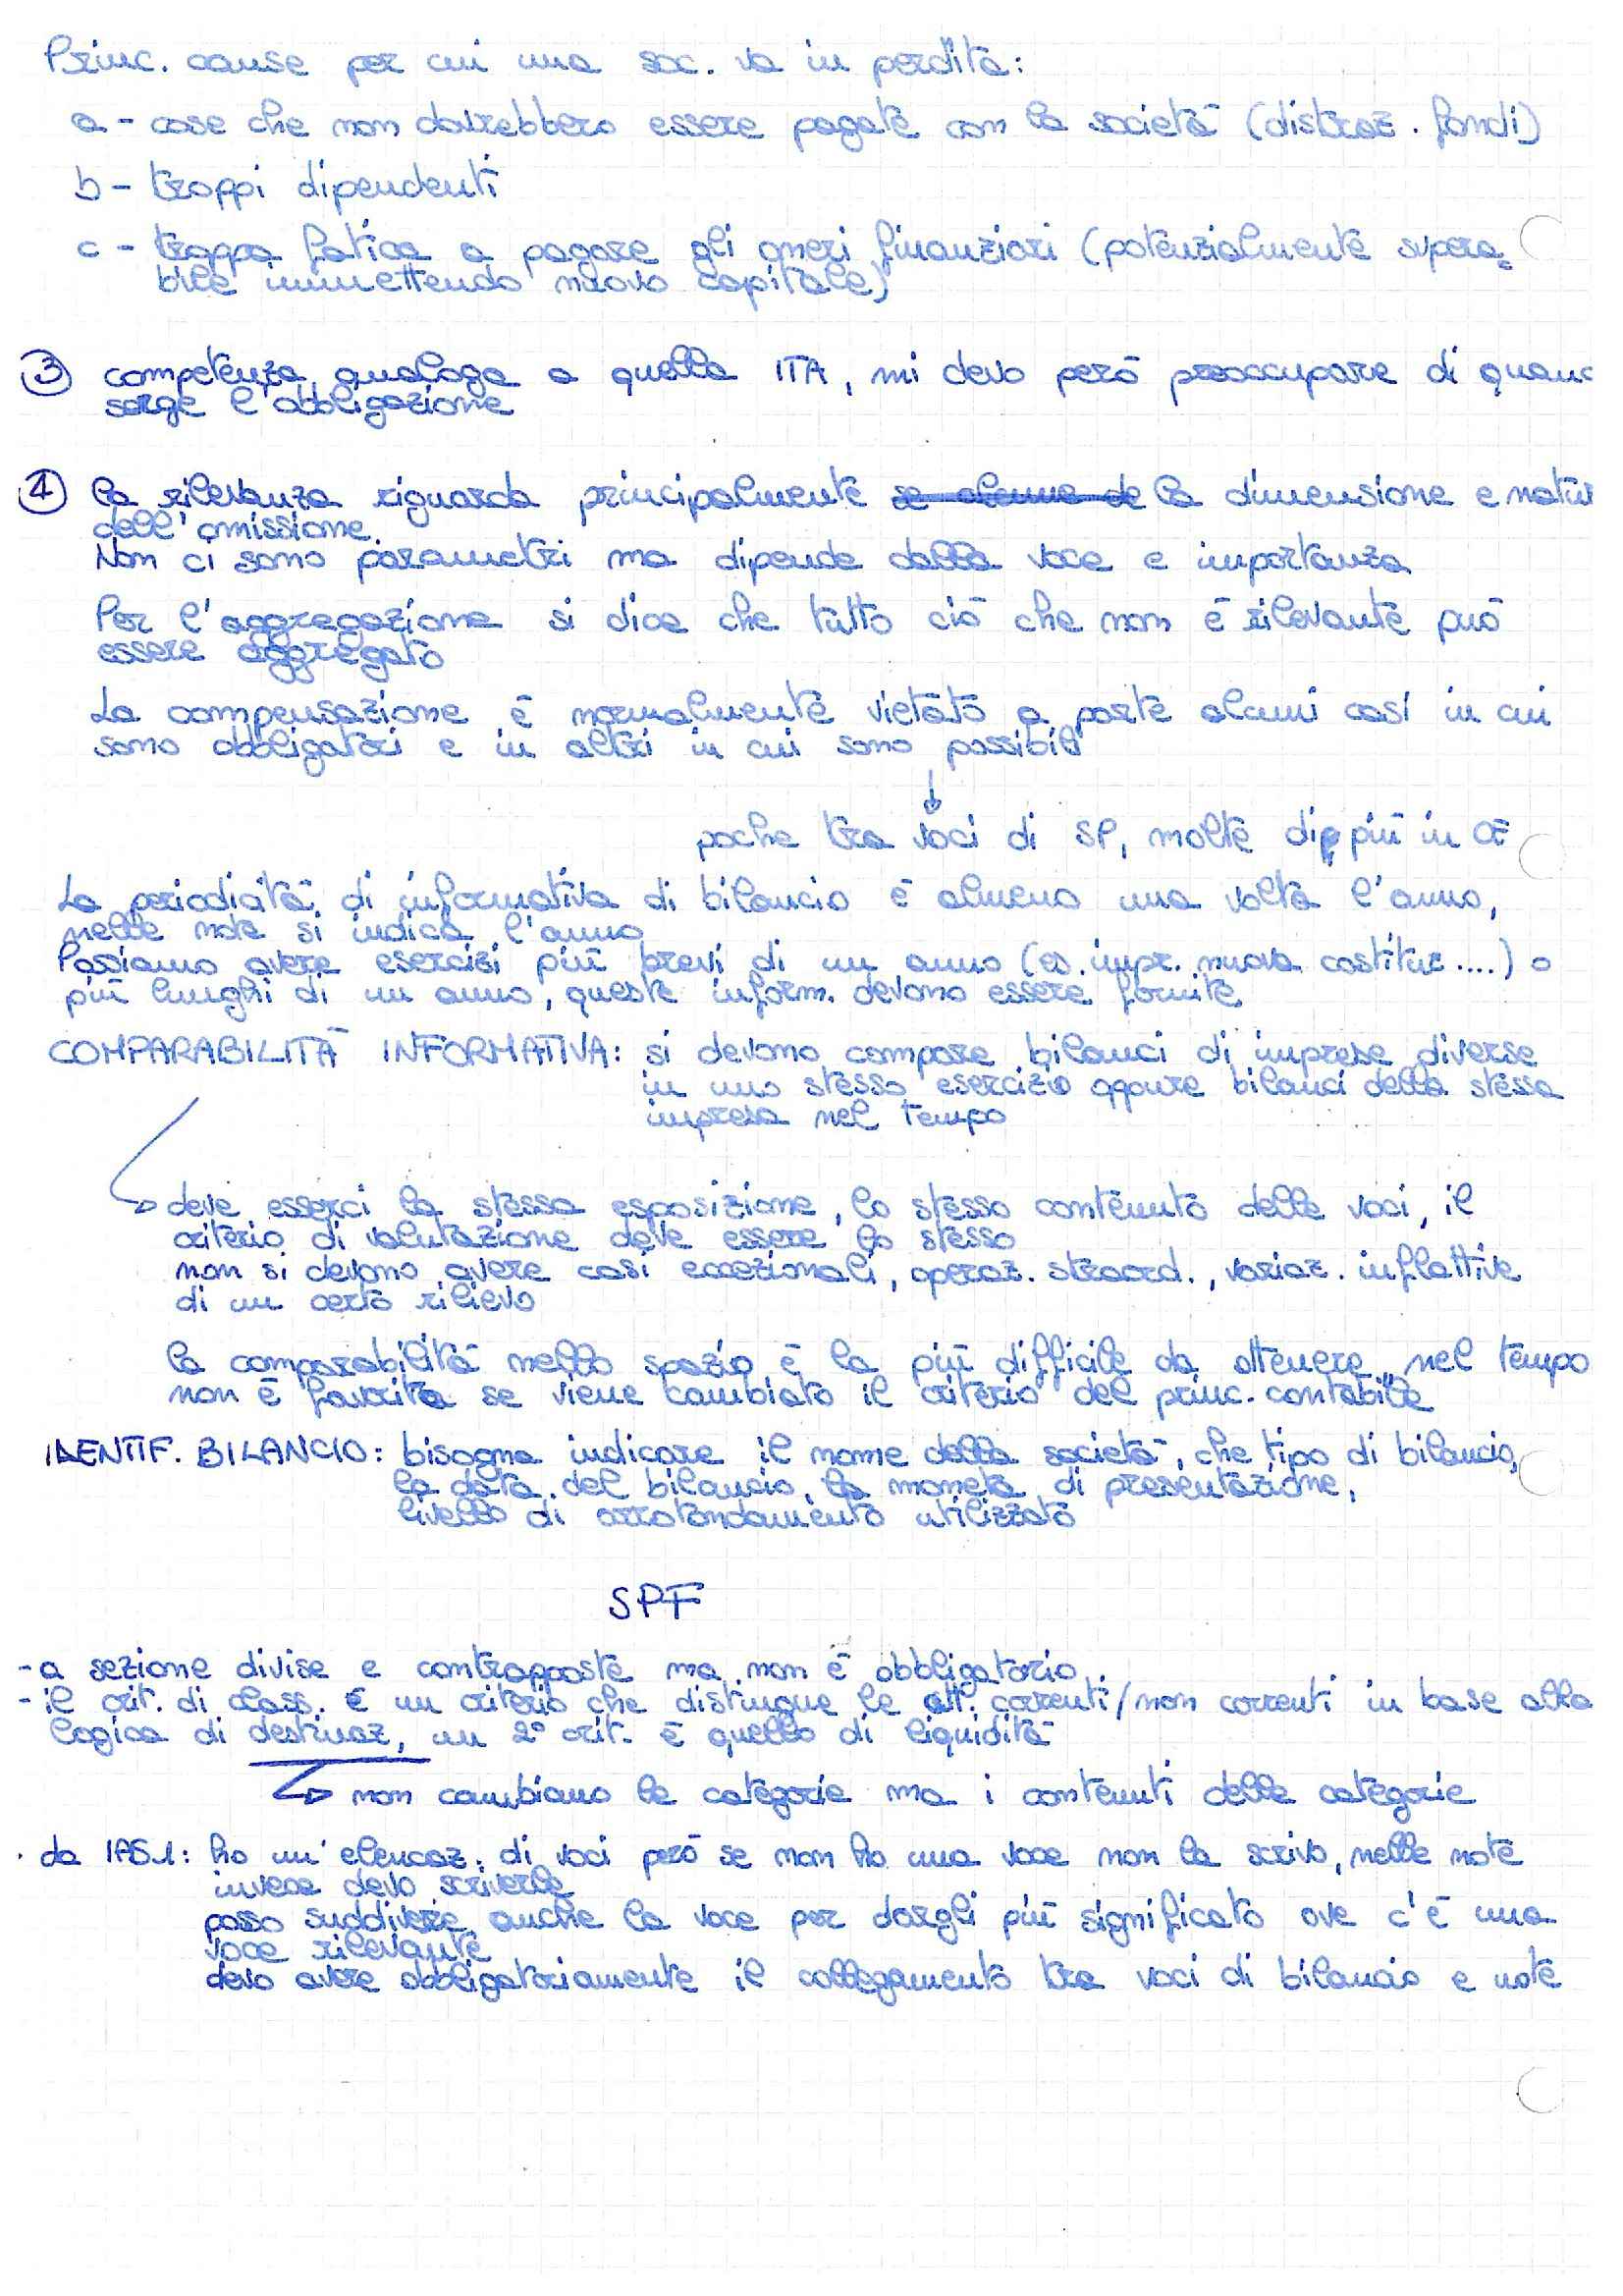 Princ. cause per cui una soc. va in perdita:
a - cose che non dovrebbero essere pagate con la società (distraz. fondi)
b - troppi dipendenti
c - troppa fatica a pagare gli oneri finanziari (potenzialmente supera=
bile immettendo nuovo capitale)
③ competenza analoga a quella ITA, mi devo però preoccupare di quan
sorge l'obbligazione
④ la rilevanza riguarda principalmente la dimensione e natur
dell'omissione.
Non ci sono parametri ma dipende dalla voce e importanza
Per l'aggregazione si dice che tutto ciò che non è rilevante può
essere aggregato
La compensazione è normalmente vietato a parte alcuni casi in cui
sono obbligatori e in altri in cui sono possibili
↓
poche tra voci di SP, molte di più in CE
La periodicità di informativa di bilancio è almeno una volta l'anno,
nelle note si indica l'anno
Possiamo avere esercizi più brevi di un anno (es. impr. nuova costituz....) o
più lunghi di un anno, queste inform. devono essere fornite
COMPARABILITÀ INFORMATIVA: si devono compare bilanci di imprese diverse
in uno stesso esercizio oppure bilanci della stessa
impresa nel tempo
deve esserci la stessa esposizione, lo stesso contenuto delle voci, il
criterio di valutazione deve essere lo stesso
non si devono avere casi eccezionali, operaz. straord., variaz. inflattive
di un certo rilievo
la comparabilità nello spazio è la più difficile da ottenere, nel tempo
non è favorita se viene cambiato il criterio del princ. contabile
IDENTIF. BILANCIO: bisogna indicare il nome della società, che tipo di bilancio,
la data del bilancio, la moneta di presentazione,
livello di arrotondamento utilizzato
SPF
- a sezione divise e contrapposte ma non è obbligatorio
- il crit. di class. è un criterio che distingue le att. correnti/non correnti in base alla
logica di destinaz, un 2° crit. è quello di liquidità
non cambiano le categorie ma i contenuti delle categorie
· da IAS 1: ho un'elencaz. di voci però se non ho una voce non la scrivo, nelle note
invece devo scriverle
posso suddivere anche la voce per dargli più significato ove c'è una
voce rilevante
devo avere obbligatoriamente il collegamento tra voci di bilancio e note